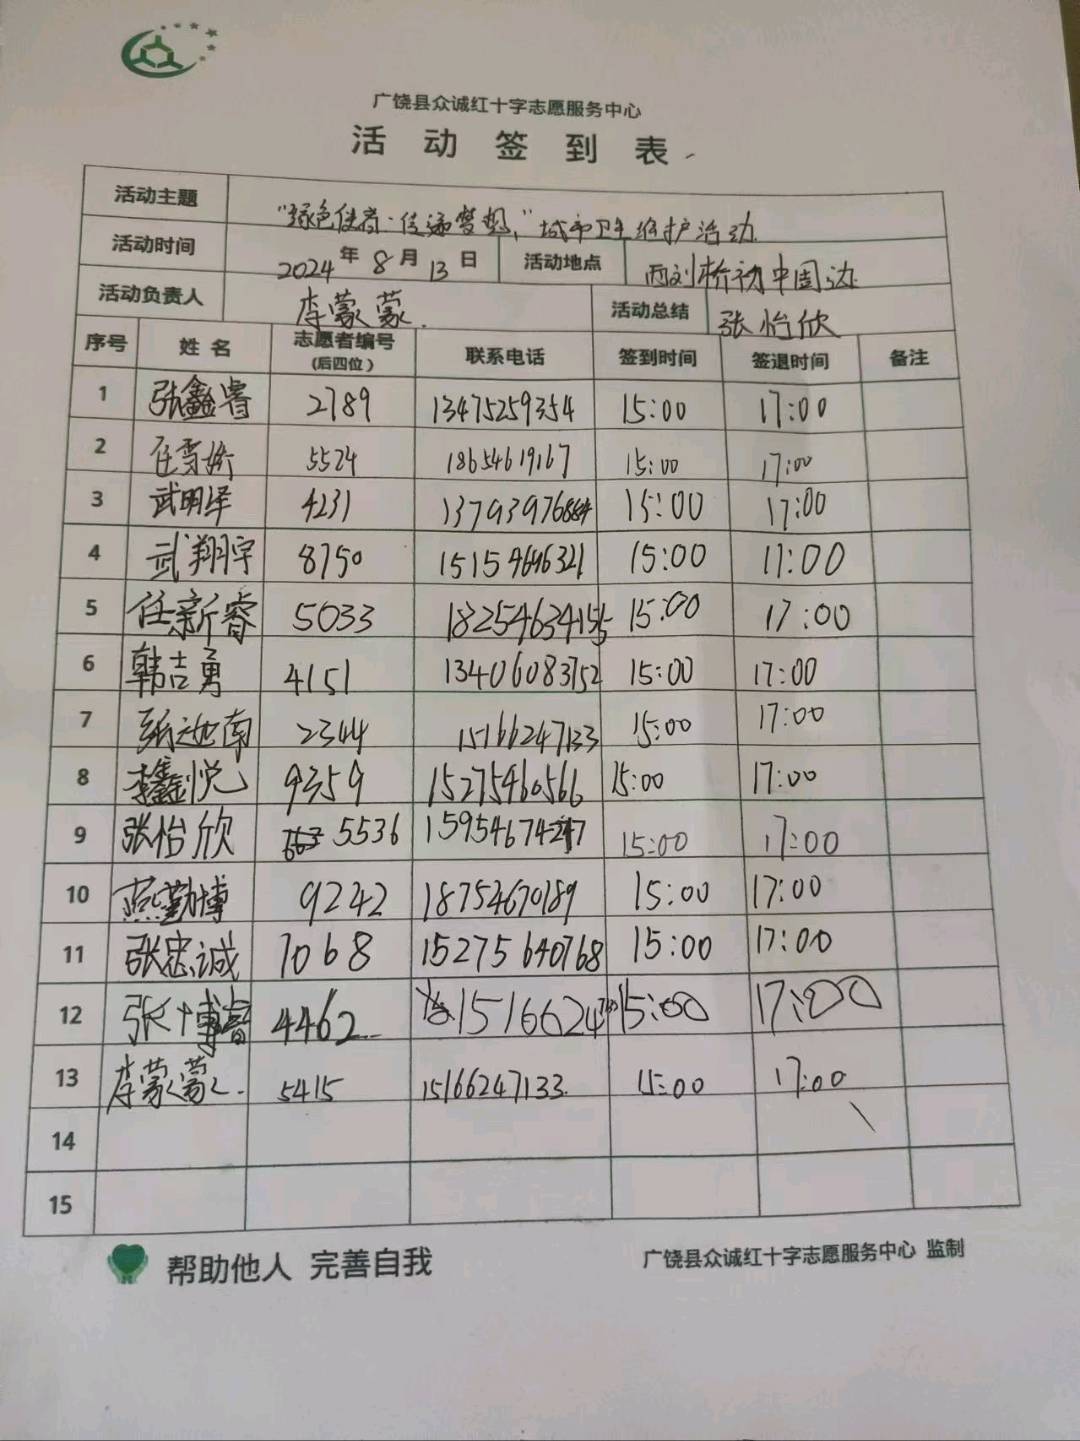 广饶县众诚红十字志愿服务中心
活动签到表
活动主题 "绿色使者·传递梦想"城市卫生维护活动
活动时间 2024年8月13日 活动地点 西刘桥初中周边
活动负责人 李蒙蒙 活动总结 张怡欣
序号 姓名 志愿者编号(后四位) 联系电话 签到时间 签退时间 备注
1 张鑫睿 2789 13475259354 15:00 17:00
2 任雪娇 5524 18654619167 15:00 17:00
3 武明泽 4231 15:00 17:00
4 武翔宇 8750 15154646321 15:00 17:00
5 任新睿 5033 15:00 17:00
6 韩吉勇 4151 13406083752 15:00 17:00
7 南 2344 15166247133 15:00 17:00
8 李鑫悦 9359 15275460566 15:00 17:00
9 张怡欣 5536 15954674247 15:00 17:00
10 燕勤博 9242 18754670189 15:00 17:00
11 张忠诚 7068 15275640768 15:00 17:00
12 张博睿 4462 15:00 17:00
13 李蒙蒙 5415 15166247133 15:00 17:00
14
15
帮助他人 完善自我
广饶县众诚红十字志愿服务中心 监制